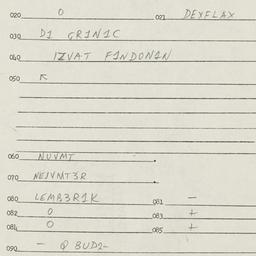 020 O 021 DEXFLAX
030 D1 GR1N1C
040 IZVAT F1NDON1N
050 K
060 NUVMT .
070 NEJVMT3R .
080 LEMB3R1K 081 -
082 O 083 +
084 O 085 +
090 - Q BUD2-